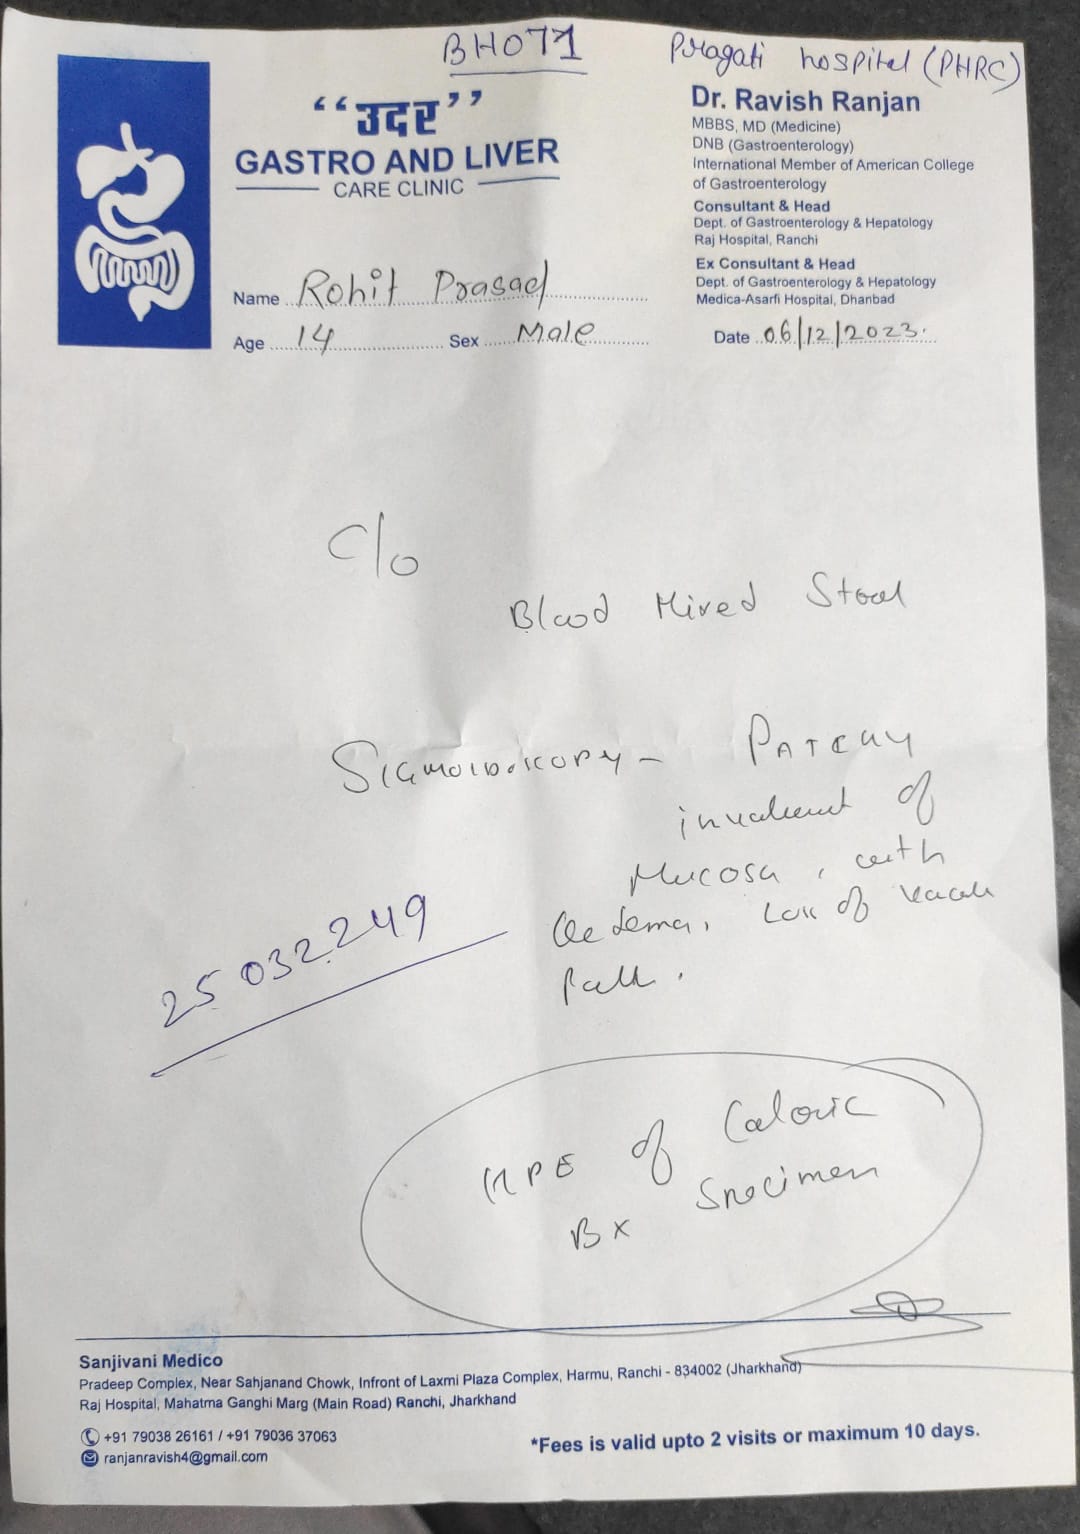 BH071
Pragati hospital (PHRC)
“उदर”
GASTRO AND LIVER
CARE CLINIC
Dr. Ravish Ranjan
MBBS, MD (Medicine)
DNB (Gastroenterology)
International Member of American College
of Gastroenterology
Consultant & Head
Dept. of Gastroenterology & Hepatology
Raj Hospital, Ranchi
Ex Consultant & Head
Dept. of Gastroenterology & Hepatology
Medica-Asarfi Hospital, Dhanbad
Name Rohit Prasad
Age 14 Sex Male
Date 06/12/2023.
C/o
Blood Mixed Stool
Sigmoidoscopy - PATCHY
involvement of
Mucosa, with
Oedema, Loss of
25032249
HPE of Colonic
Bx Specimen
Sanjivani Medico
Pradeep Complex, Near Sahjanand Chowk, Infront of Laxmi Plaza Complex, Harmu, Ranchi - 834002 (Jharkhand)
Raj Hospital, Mahatma Ganghi Marg (Main Road) Ranchi, Jharkhand
+91 79038 26161 / +91 79036 37063
ranjanravish4@gmail.com
*Fees is valid upto 2 visits or maximum 10 days.